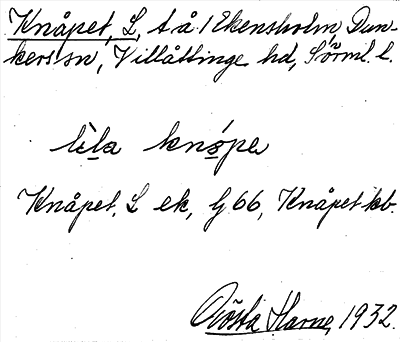 Knåpet, L, t å 1 Ekensholm, Dun-
kers sn, Villåttinge hd, Sörml. l.
lìla knópe
Knåpet, L ek, G 66, Knåpet kb.
Gösta Harne, 1932.